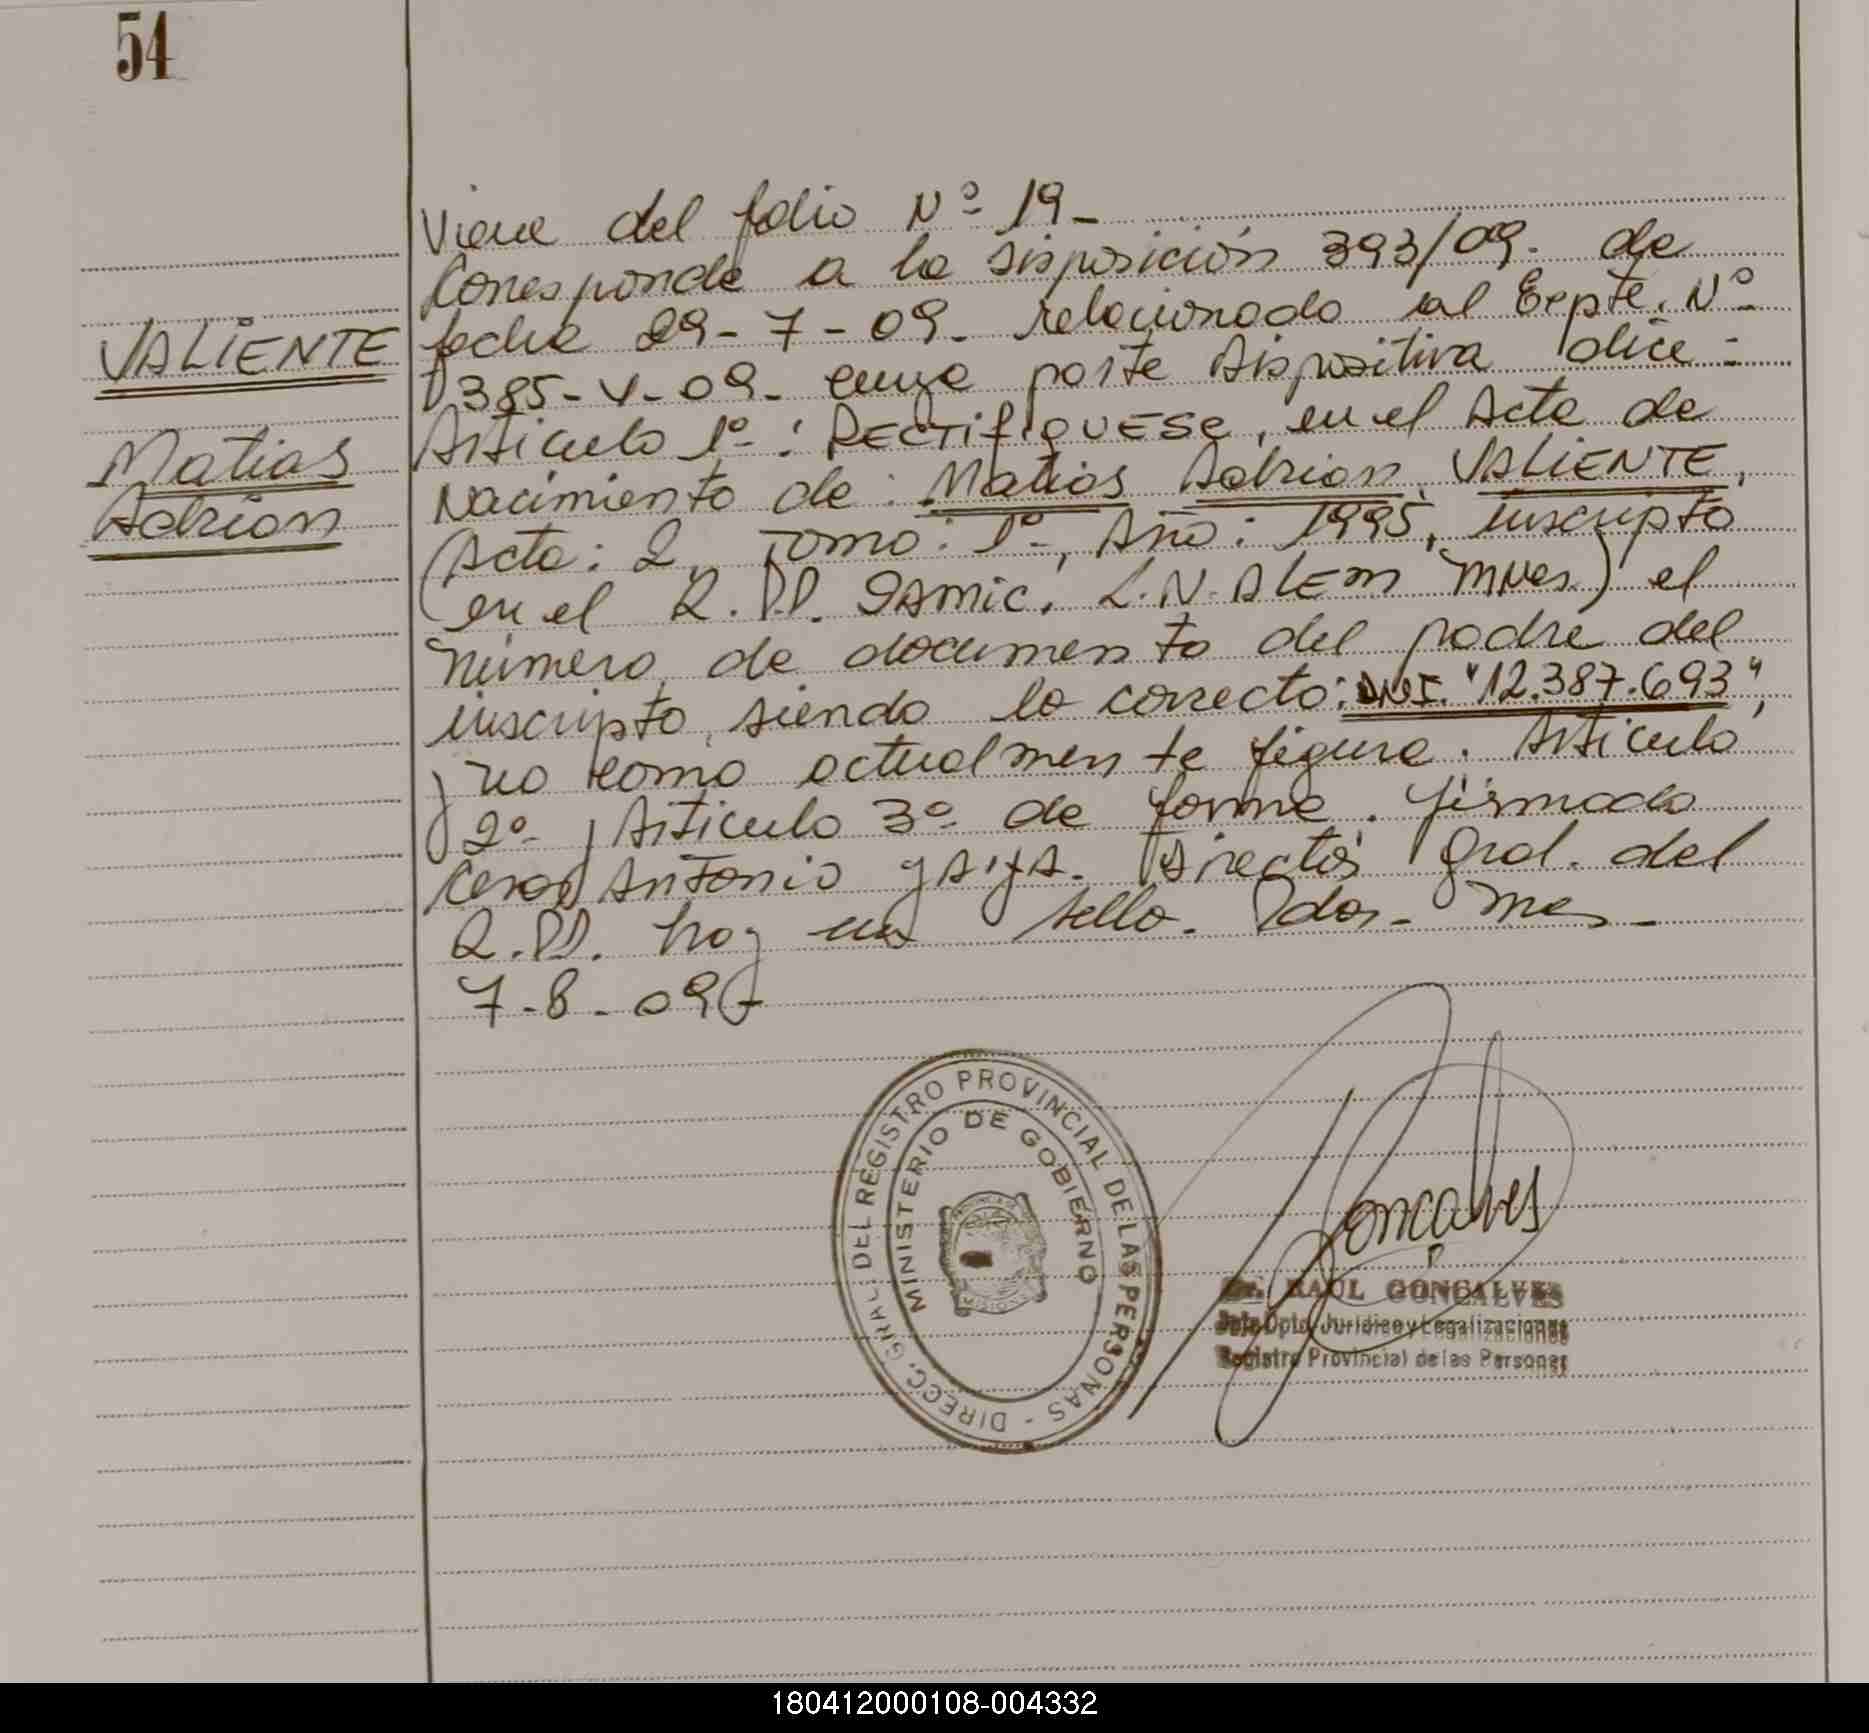 54
VALIENTE
Matias
Adrian
Viene del folio Nº 19-
Corresponde a la disposición 393/09. de
fecha 29-7-09. relacionado al Expte. Nº
385-V-09- cuya parte dispositiva dice:
Articulo 1º: RECTIFIQUESE, en el Acta de
Nacimiento de: Matias Adrian VALIENTE,
(Acta: 2, Tomo: 1º, Año: 1995, inscripto
en el R.P.P. SAMIC. L.N. ALEM Mnes) el
número de documento del padre del
inscripto, siendo lo correcto: DNI. "12.387.693",
y no como actualmente figura. Articulo
2º y Articulo 3º de forma. firmado
Cesar Antonio Director Gral. del
R.P.P. hay un sello. Pdas- Mnes-
7-8-09-
DIRECC. GRAL. DEL REGISTRO PROVINCIAL DE LAS PERSONAS -
MINISTERIO DE GOBIERNO
MISIONES
Goncalves
Dr. RAUL GONCALVES
Jefe Dpto. Juridico y Legalizaciones
Registro Provincial de las Personas
180412000108-004332